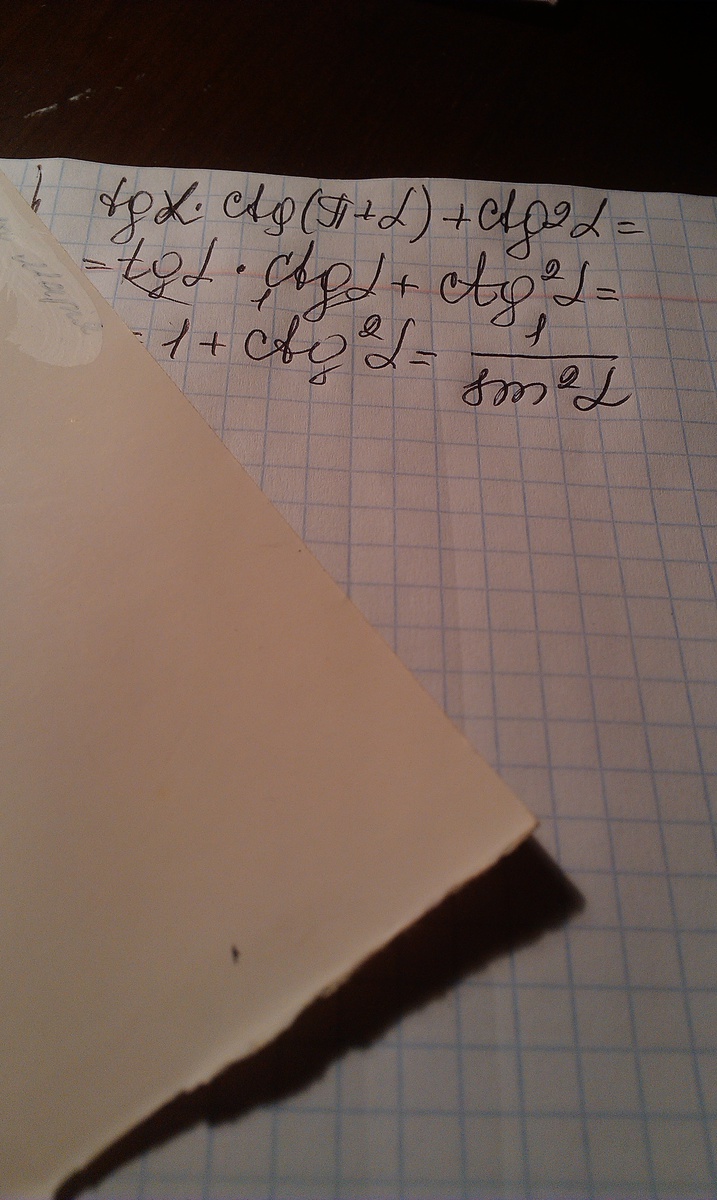 tgα · ctg(π+α) + ctg²α =
= tgα · ctgα + ctg²α =
1
= 1 + ctg²α = 1/sin²α